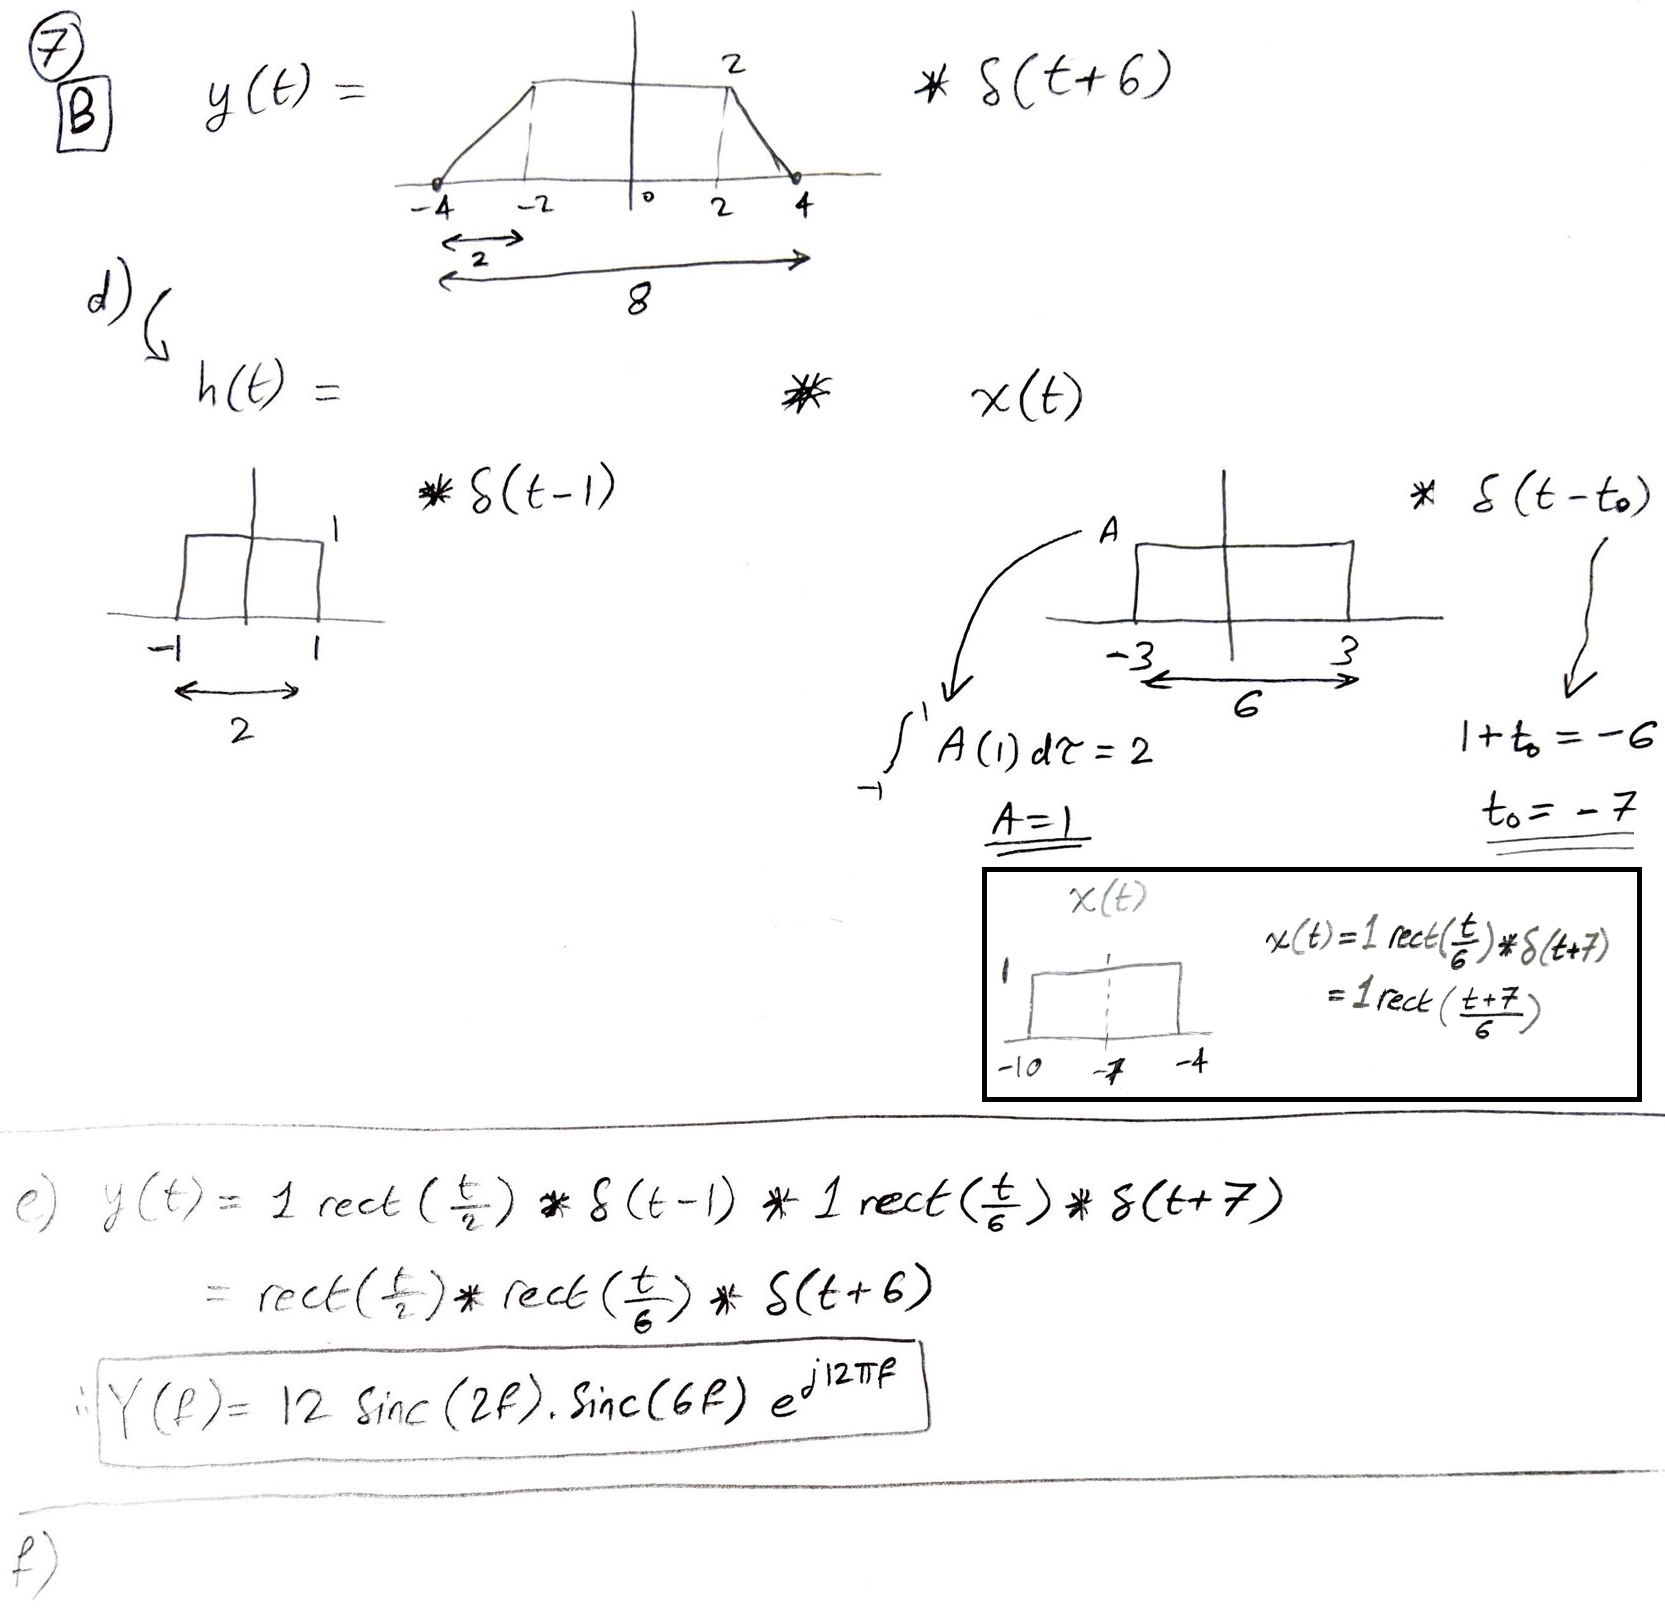 7
B
y(t) = * δ(t+6)
2
-4 -2 0 2 4
2
8
d)
h(t) = * x(t)
1 * δ(t-1)
-1 1
2
A * δ(t-t₀)
-3 3
6
∫₋₁¹ A(1)dτ = 2
A=1
1+t₀ = -6
t₀ = -7
x(t)
1
-10 -7 -4
x(t)=1 rect(t/6)*δ(t+7)
=1 rect(t+7/6)
e) y(t) = 1 rect(t/2) * δ(t-1) * 1 rect(t/6) * δ(t+7)
= rect(t/2) * rect(t/6) * δ(t+6)
∴ Y(f) = 12 sinc(2f). sinc(6f) e^j12πf
f)